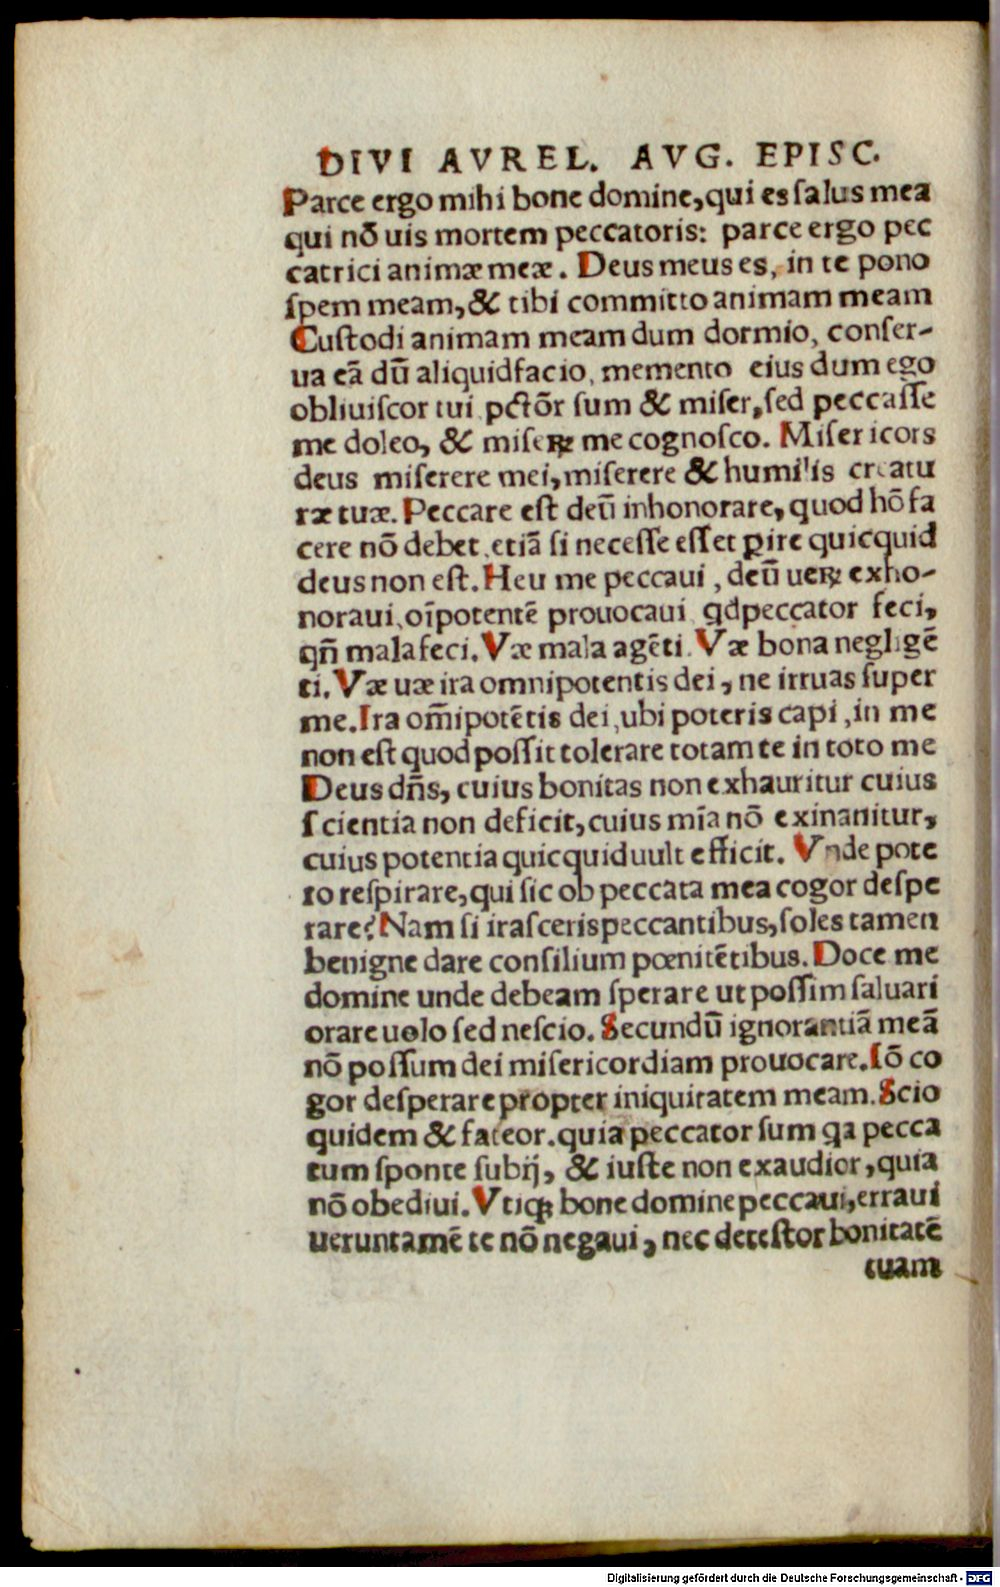 DIVI AVREL. AVG. EPISC.
Parce ergo mihi bone domine, qui es ſalus mea
qui nō uis mortem peccatoris: parce ergo pec
catrici animæ meæ. Deus meus es, in te pono
ſpem meam, & tibi committo animam meam
Cuſtodi animam meam dum dormio, conſer-
ua eā dū aliquid facio, memento eius dum ego
obliuiſcor tui. pctōr ſum & miſer, ſed peccaſſe
me doleo, & miſeꝝ me cognoſco. Miſericors
deus miſerere mei, miſerere & humilis creatu
ræ tuæ. Peccare eſt deū inhonorare, quod hō fa
cere nō debet, etiā ſi neceſſe eſſet ꝑire quicquid
deus non eſt. Heu me peccaui, deū ueꝝ exho-
noraui, oīpotentē prouocaui qd peccator feci,
qn̄ mala feci. Væ mala agēti. Væ bona negligē
ti. Væ uæ ira omnipotentis dei, ne irruas ſuper
me. Ira om̄ipotētis dei, ubi poteris capi, in me
non eſt quod poſſit tolerare totam te in toto me
Deus dn̄s, cuius bonitas non exhauritur cuius
ſcientia non deficit, cuius mīa nō exinanitur,
cuius potentia quicquid uult efficit. Vnde pote
ro reſpirare, qui ſic ob peccata mea cogor deſpe
rare? Nam ſi iraſceris peccantibus, ſoles tamen
benigne dare conſilium pœnitētibus. Doce me
domine unde debeam ſperare ut poſſim ſaluari
orare uolo ſed neſcio. Secundū ignorantiā meā
nō poſſum dei miſericordiam prouocare. Iō co
gor deſperare propter iniquitatem meam. Scio
quidem & fateor. quia peccator ſum qa pecca
tum ſponte ſubij, & iuſte non exaudior, quia
nō obediui. Vtiqꝫ bone domine peccaui, erraui
ueruntamē te nō negaui, nec deteſtor bonitatē
tuam
Digitalisierung gefördert durch die Deutsche Forschungsgemeinschaft - DFG